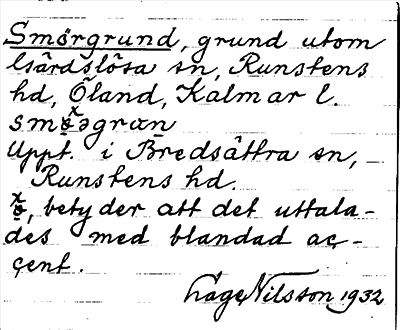 Smörgrund, grund utom
Gärdslösa sn, Runstens
hd, Öland, Kalmar l.
Uppt. i Bredsättra sn,
Runstens hd.
betyder att det uttala-
des med blandad ac-
cent.
Åage Nilsson 1932